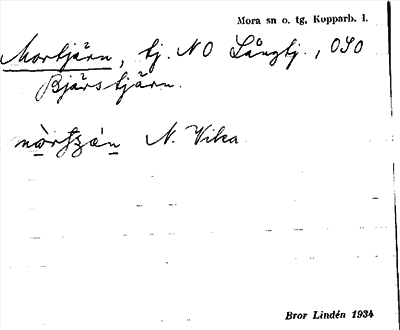 Mora sn o. tg, Kopparb. l.
Mortjärn, tj. NO Långtj., OSO
Bjärstjärn.
N. Vika
Bror Lindén 1934